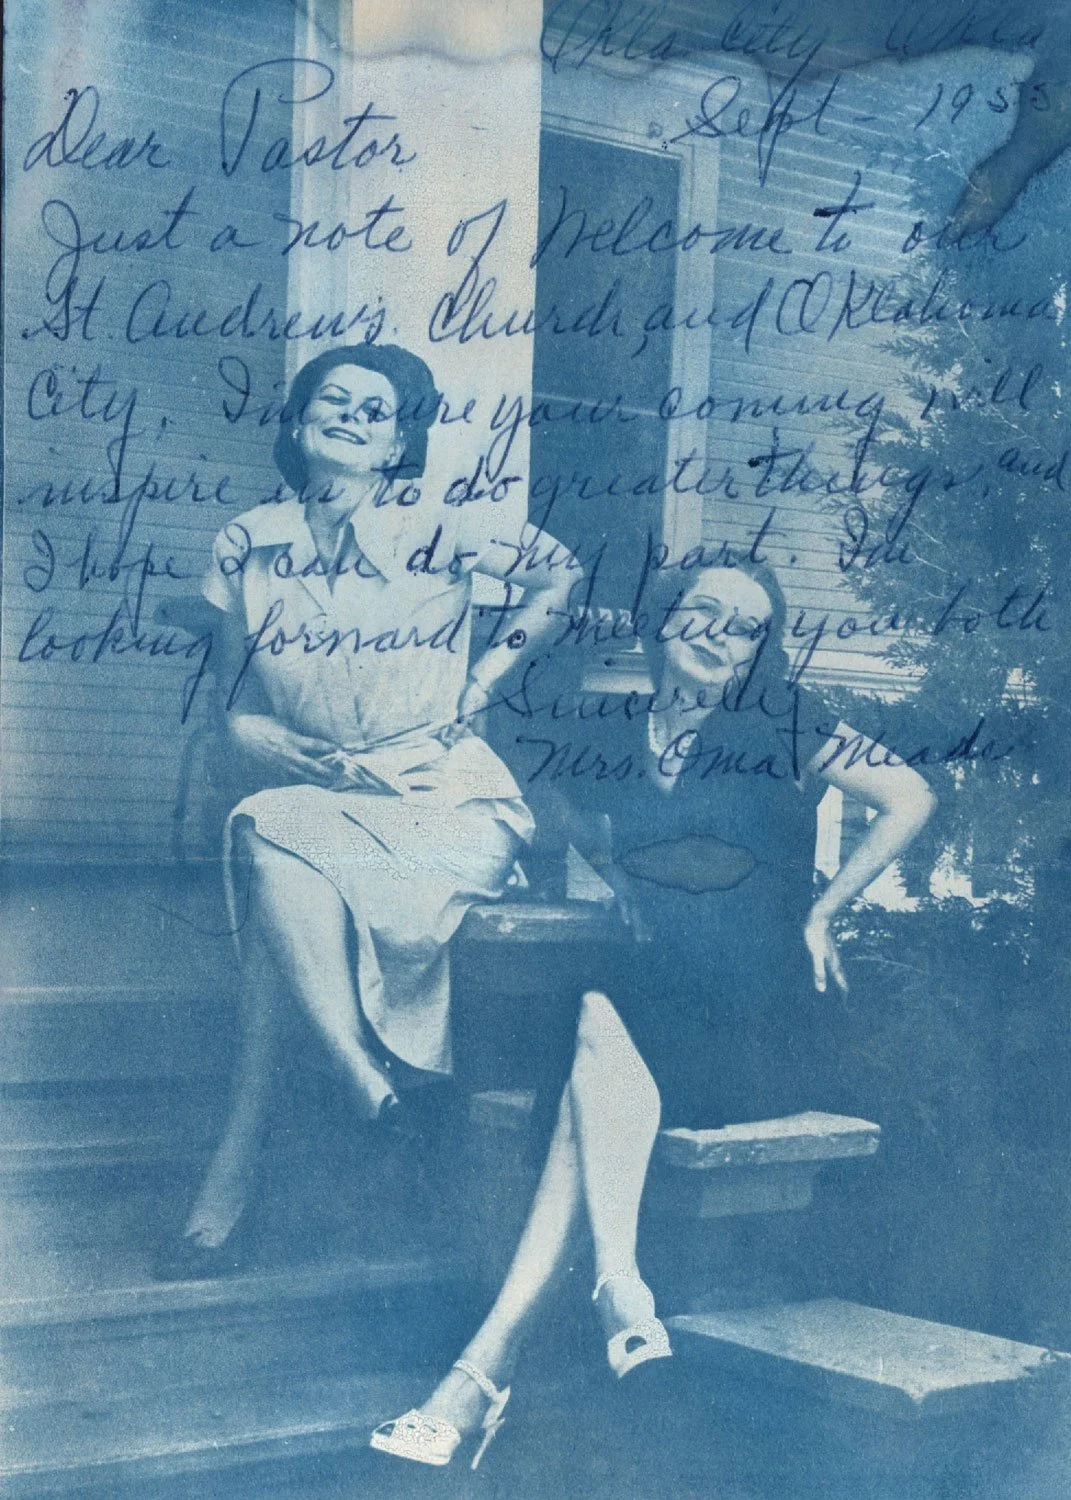 Okla City - Okla
Sept - 1955
Dear Pastor
Just a note of Welcome to our
St. Andrew's Church, and Oklahoma
City. I'm sure your coming will
inspire us to do greater things, and
I hope I can do my part. I'm
looking forward to meeting you both
Sincerely
Mrs. Oma Meade